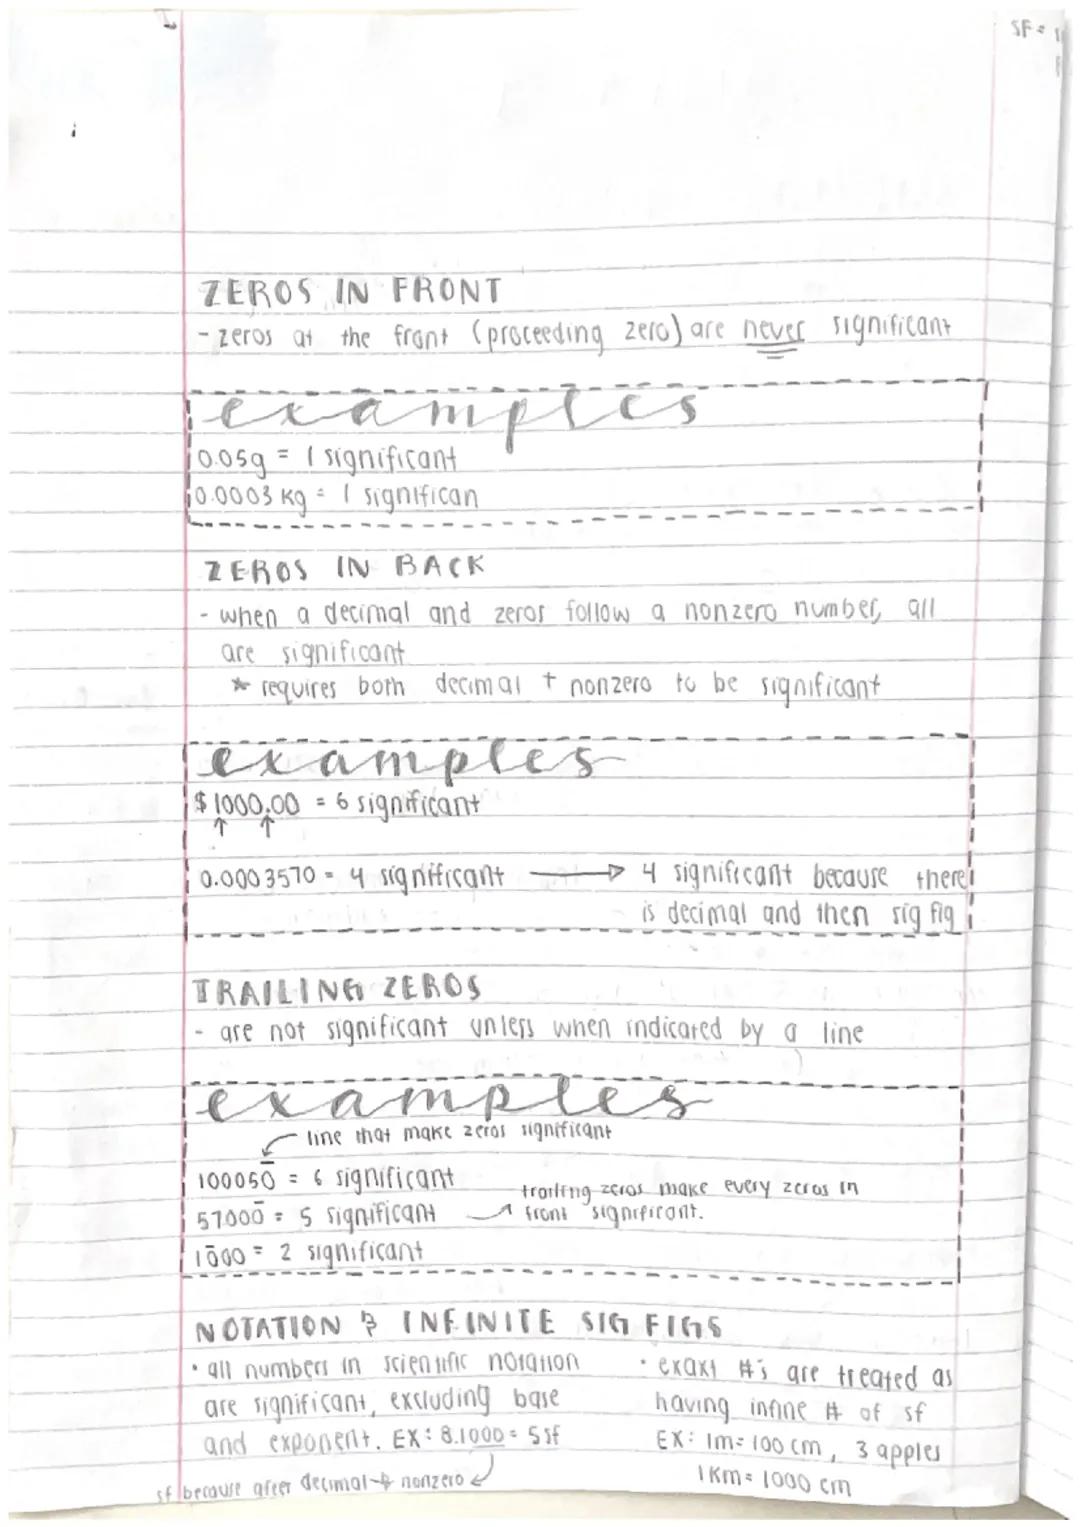 SF =
ZEROS IN FRONT
- zeros at the front (proceeding zero) are never significant
examples
0.05g = 1 significant
0.0003 kg = 1 significan
ZEROS IN BACK
- when a decimal and zeros follow a nonzero number, all
are significant
* requires both decimal + nonzero to be significant
examples
$1000.00 = 6 significant
↑ ↑
0.0003570 = 4 significant → 4 significant because there
is decimal and then sig fig
TRAILING ZEROS
- are not significant unless when indicated by a line
examples
line that make zeros significant
100050̄ = 6 significant
trailing zeros make every zeros in
57000̄ = 5 significant
front significant.
10̄00 = 2 significant
NOTATION & INFINITE SIG FIGS
• all numbers in scientific notation
are significant, excluding base
and exponent. EX: 8.1000 = 5sf
sf because after decimal → nonzero
• exaxt #'s are treated as
having infine # of sf
EX: 1m = 100 cm, 3 apples
1 Km = 1000 cm